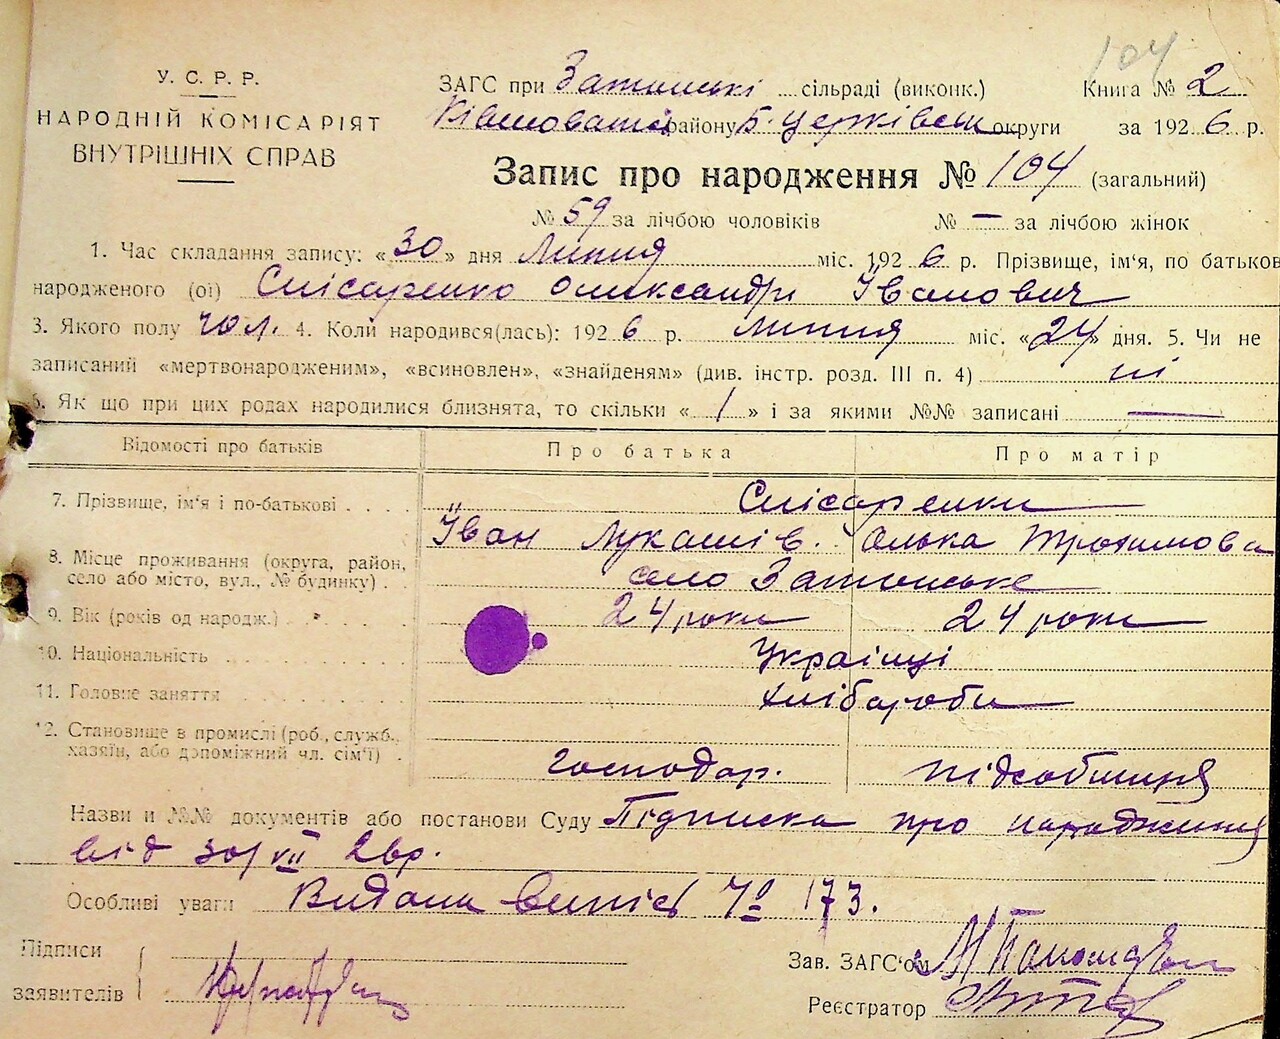 104
У. С. Р. Р.
НАРОДНІЙ КОМІСАРІЯТ
ВНУТРІШНІХ СПРАВ
ЗАГС при сільраді (виконк.) Книга № 2
району Б. Церківськ округи за 1926 р.
Запис про народження № 104 (загальний)
№ 59 за лічбою чоловіків № — за лічбою жінок
1. Час складання запису: «30» дня Липня міс. 1926 р. Прізвище, ім'я, по батьков
народженого (ої) Слісаренко Олександр Іванович
3. Якого полу чол. 4. Коли народився(лась): 1926 р. Липня міс. «24» дня. 5. Чи не
записаний «мертвонародженим», «всиновлен», «знайденям» (див. інстр. розд. III п. 4) ні
6. Як що при цих родах народилися близнята, то скільки «/» і за якими №№ записані —
Відомості про батьків Про батька Про матір
7. Прізвище, ім'я і по-батькові Слісаренки
Іван Лукашів. Олька Трохимова
8. Місце проживання (округа, район,
село або місто, вул., № будинку) село
9. Вік (років од народж.) 24 роки 24 роки
10. Національність Українці
11. Головне заняття хлібороби
12. Становище в промислі (роб., служб.,
хазяїн, або допоміжний чл. сім'ї) господар. підсобниця
Назви и №№ документів або постанови Суду Підписка про народження
від 30/VII 26р.
Особливі уваги Видана випись № 173.
Підписи
заявителів
Зав. ЗАГС'ом
Реєстратор